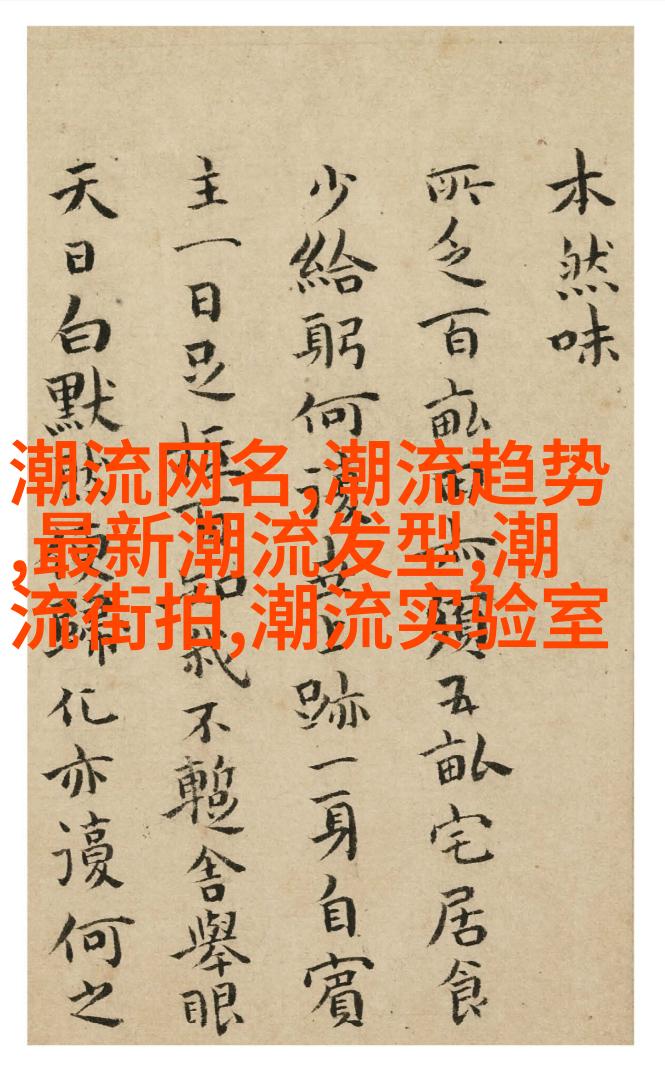 本然味
所乏百畝五畝宅居食
少給躬何復跡一身自賓
主一日足不暫舍舉眼
天日白默歸化亦復何之
潮流网名,潮流趋势
,最新潮流发型,潮
流街拍,潮流实验室